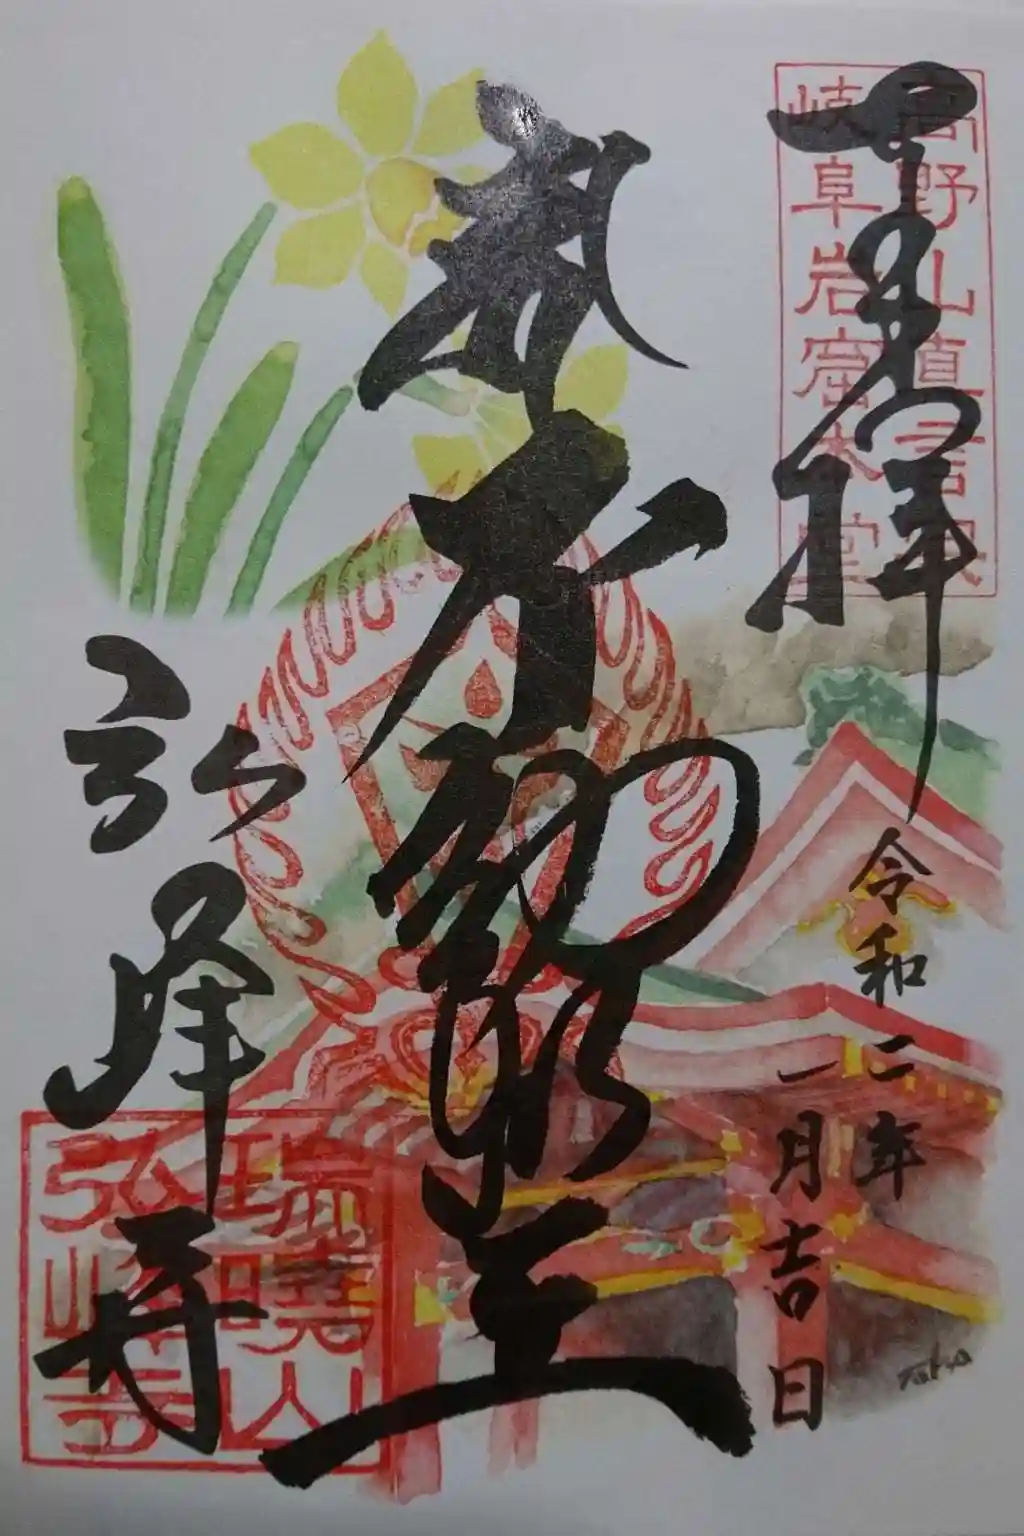 奉拝
高野山真言宗
岐阜岩窟本堂
令和二年
一月吉日
不動明王
弘峰寺
瑞曉山
弘峰寺